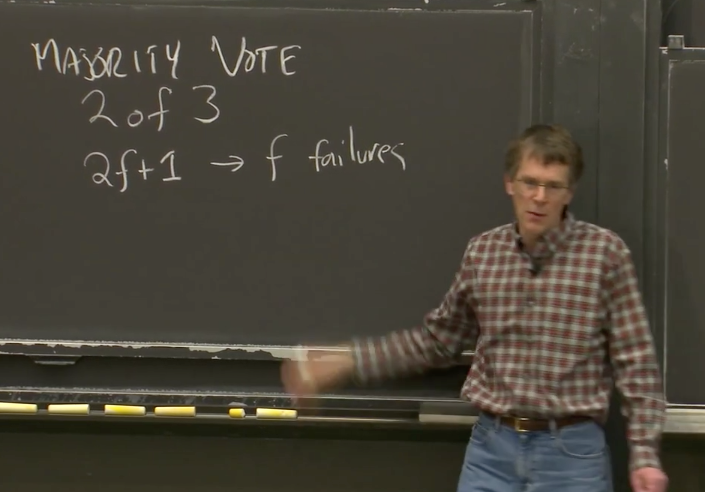 MAJORITY VOTE
2 of 3
2f+1 → f failures